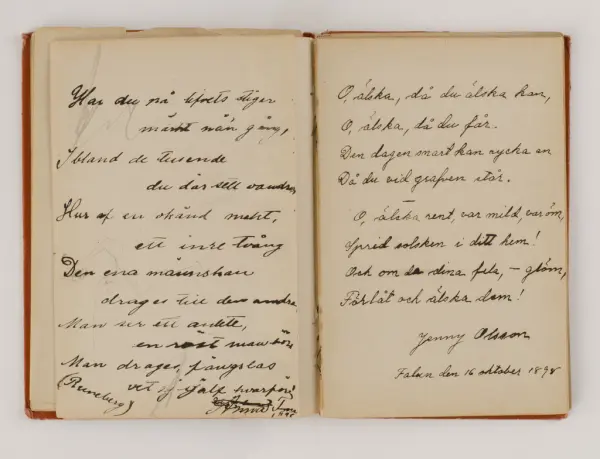 Har du på lifvets stigar
märkt nån gång,
Ibland de tusende
du där sett vandra,
Hur af en okänd makt,
ett inre tvång
Den ena människan
drages till den andra
Man ser ett anlete,
en röst man hör
Man drages, fängslas
vet ej själf hvarför
(Runeberg)
O, älska, då du älska kan,
O, älska, då du får.
Den dagen snart kan rycka an
Då du vid grafven står.
O, älska rent, var mild, var öm,
Sprid solsken i ditt hem!
Och om de dina fela, – glöm,
Förlåt och älska dem!
Jenny Olsson
Falun den 16 oktober 1898